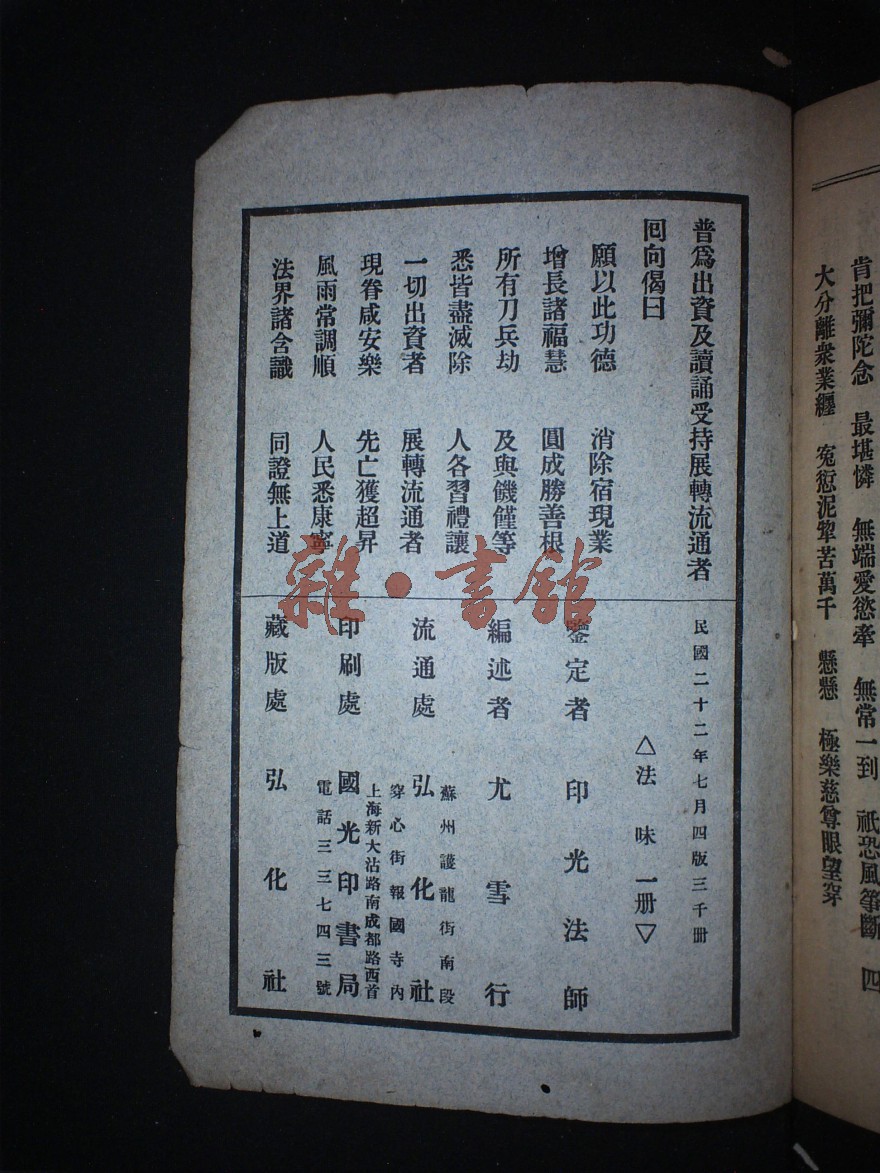 肯把彌陀念　最堪憐　無端愛慾牽　無常一到　祇恐風箏斷　四
大分離衆業纏　寃愆泥犂苦萬千　懸懸　極樂慈尊眼望穿
普爲出資及讀誦受持展轉流通者
囘向偈曰
願以此功德　消除宿現業
增長諸福慧　圓成勝善根
所有刀兵劫　及與饑饉等
悉皆盡滅除　人各習禮讓
一切出資者　展轉流通者
現眷咸安樂　先亡獲超昇
風雨常調順　人民悉康寧
法界諸含識　同證無上道
民國二十二年七月四版三千册
△法味一册▽
鑒定者　印光法師
編述者　尤雪行
蘇州護龍街南段
流通處　弘化社
穿心街報國寺內
上海新大沽路南成都路西首
印刷處　國光印書局
電話三三七四三號
藏版處　弘化社
雜·書館